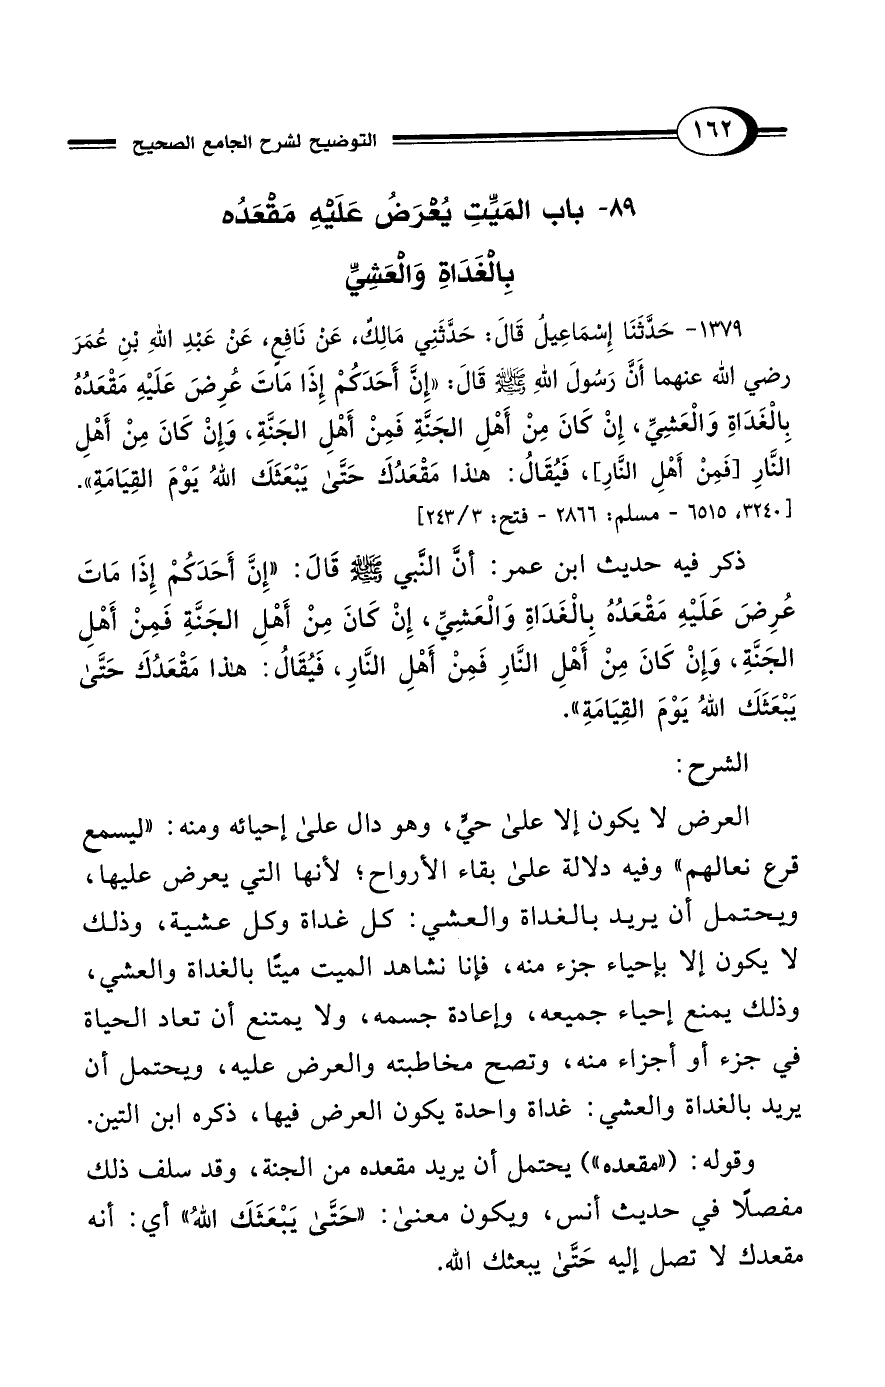 ١٦٢ التوضيح لشرح الجامع الصحيح
٨٩- باب المَيِّتِ يُعْرَضُ عَلَيْهِ مَقْعَدُه
بِالْغَدَاةِ وَالْعَشِيِّ
١٣٧٩- حَدَّثَنَا إِسْمَاعِيلُ قَالَ: حَدَّثَنِي مَالِكٌ، عَنْ نَافِعٍ، عَنْ عَبْدِ اللهِ بْنِ عُمَرَ
رضي الله عنهما أَنَّ رَسُولَ اللهِ ﷺ قَالَ: «إِنَّ أَحَدَكُمْ إِذَا مَاتَ عُرِضَ عَلَيْهِ مَقْعَدُهُ
بِالْغَدَاةِ وَالْعَشِيِّ، إِنْ كَانَ مِنْ أَهْلِ الجَنَّةِ فَمِنْ أَهْلِ الجَنَّةِ، وَإِنْ كَانَ مِنْ أَهْلِ
النَّارِ [فَمِنْ أَهْلِ النَّارِ]، فَيُقَالُ: هٰذا مَقْعَدُكَ حَتَّىٰ يَبْعَثَكَ اللهُ يَوْمَ القِيَامَةِ».
[٣٢٤٠، ٦٥١٥ - مسلم: ٢٨٦٦ - فتح: ٢٤٣/٣]
ذكر فيه حديث ابن عمر: أنَّ النَّبي ﷺ قَالَ: «إِنَّ أَحَدَكُمْ إِذَا مَاتَ
عُرِضَ عَلَيْهِ مَقْعَدُهُ بِالْغَدَاةِ وَالْعَشِيِّ، إِنْ كَانَ مِنْ أَهْلِ الجَنَّةِ فَمِنْ أَهْلِ
الجَنَّةِ، وَإِنْ كَانَ مِنْ أَهْلِ النَّارِ فَمِنْ أَهْلِ النَّارِ، فَيُقَالُ: هٰذا مَقْعَدُكَ حَتَّىٰ
يَبْعَثَكَ اللهُ يَوْمَ القِيَامَةِ».
الشرح:
العرض لا يكون إلا علىٰ حيٍّ، وهو دال علىٰ إحيائه ومنه: «ليسمع
قرع نعالهم» وفيه دلالة علىٰ بقاء الأرواح؛ لأنها التي يعرض عليها،
ويحتمل أن يريد بالغداة والعشي: كل غداة وكل عشية، وذلك
لا يكون إلا بإحياء جزء منه، فإنا نشاهد الميت ميتًا بالغداة والعشي،
وذلك يمنع إحياء جميعه، وإعادة جسمه، ولا يمتنع أن تعاد الحياة
في جزء أو أجزاء منه، وتصح مخاطبته والعرض عليه، ويحتمل أن
يريد بالغداة والعشي: غداة واحدة يكون العرض فيها، ذكره ابن التين.
وقوله: («مقعده») يحتمل أن يريد مقعده من الجنة، وقد سلف ذلك
مفصلًا في حديث أنس، ويكون معنىٰ: «حَتَّىٰ يَبْعَثَكَ اللهُ» أي: أنه
مقعدك لا تصل إليه حَتَّىٰ يبعثك الله.